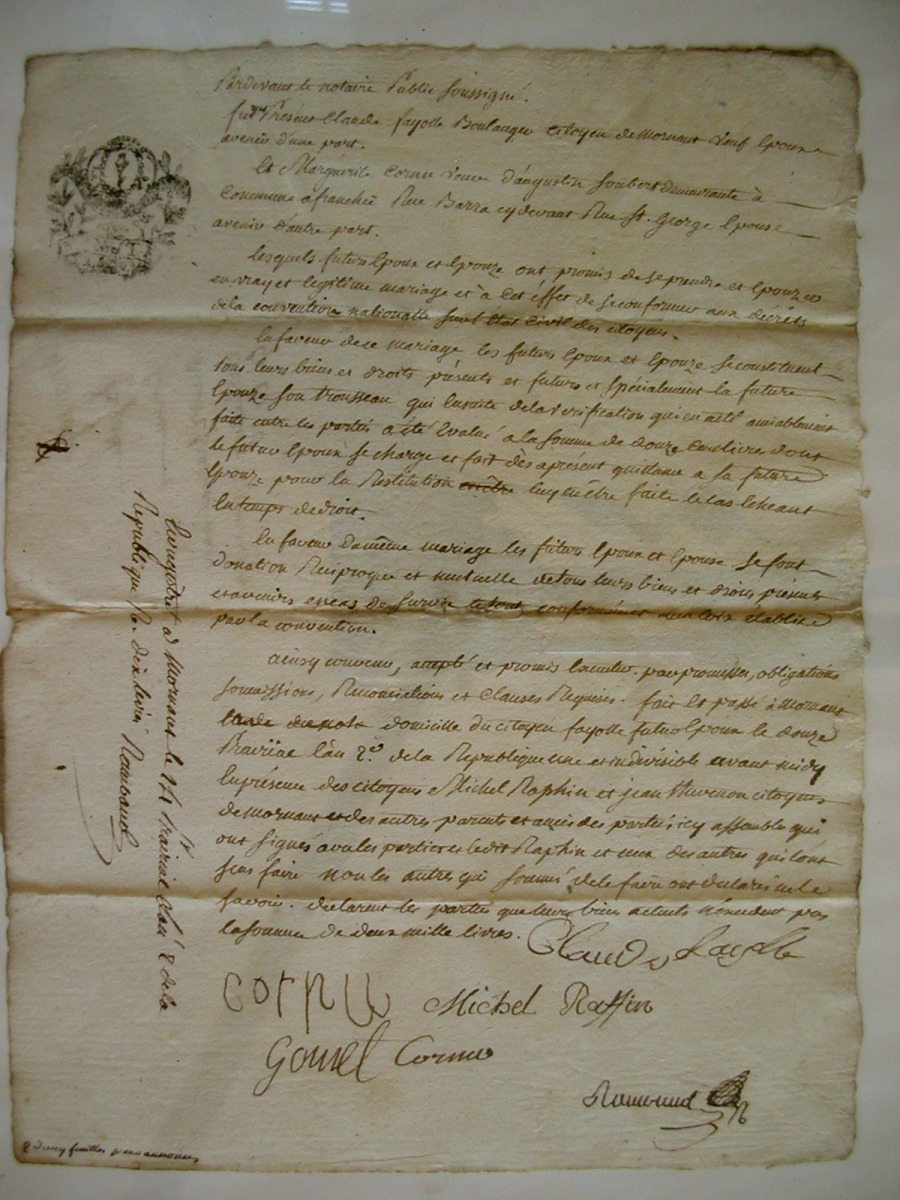 Pardevant le notaire Public soussigné.
fut Présent Claude fayolle Boulanger citoyen de mornant veuf Epoux
avenir d'une part.
Et Marguerite Cornu veuve d'augustin Joubert demeurante à
Commune afranchie Rue Barra cy devant Rue St. George Epouse
avenir d'autre part.
Lesquels futurs Epoux et Epouze ont promis de se prendre et Epouzer
en vray et légitime mariage et à cet éffet de se conformer aux décrets
de la convention nationalle sur l'Etat Civil des citoyens.
En faveur de ce mariage les futurs Epoux et Epouze se constituent
tous leurs biens et droits présents et futurs et spécialement la future
Epouze son trousseau qui ensuite de la verification qui en a été amiablement
faite entre les parties a été Evalué à la somme de douze Cent livre dont
le futur Epoux se charge et fait dès aprésent quittance a la future
Epouze pour la Restitution luy en être faite le cas Echeant
En temps de droit.
En faveur du même mariage les futurs Epoux et Epouse se font
Donation Réciproque et mutuelle de tous leurs biens et droits présents
et avenirs en cas de survie le tout conformément aux loix établies
par la convention.
ainsy convenu, accepté et promis Executer par promesses, obligations
soumissions, Renonciations et Clauses Requises. fait et passé à Mornant
domicille du citoyen fayolle futur Epoux le douze
Prairial l'an 2e de la Republique une et indivisible avant midy
En présence des citoyens Michel Raphin et jean citoyens
de mornant et des autres parents et amis des parties icy assemblés qui
ont signés avec les parties et ledit Raphin et ceux des autres qui l'ont
sçus faire non les autres qui sommés de le faire ont déclarés ne le
savoir. déclarent les parties que leurs biens actuels n'éxcedent pas
la somme de deux mille livres.
Claude Fayolle
cornu Michel Raffin
Gonel Cornu
Remarques
Enregistré à Mornant le 14 Prairial l'an 2 de la
République Rx. dix livres